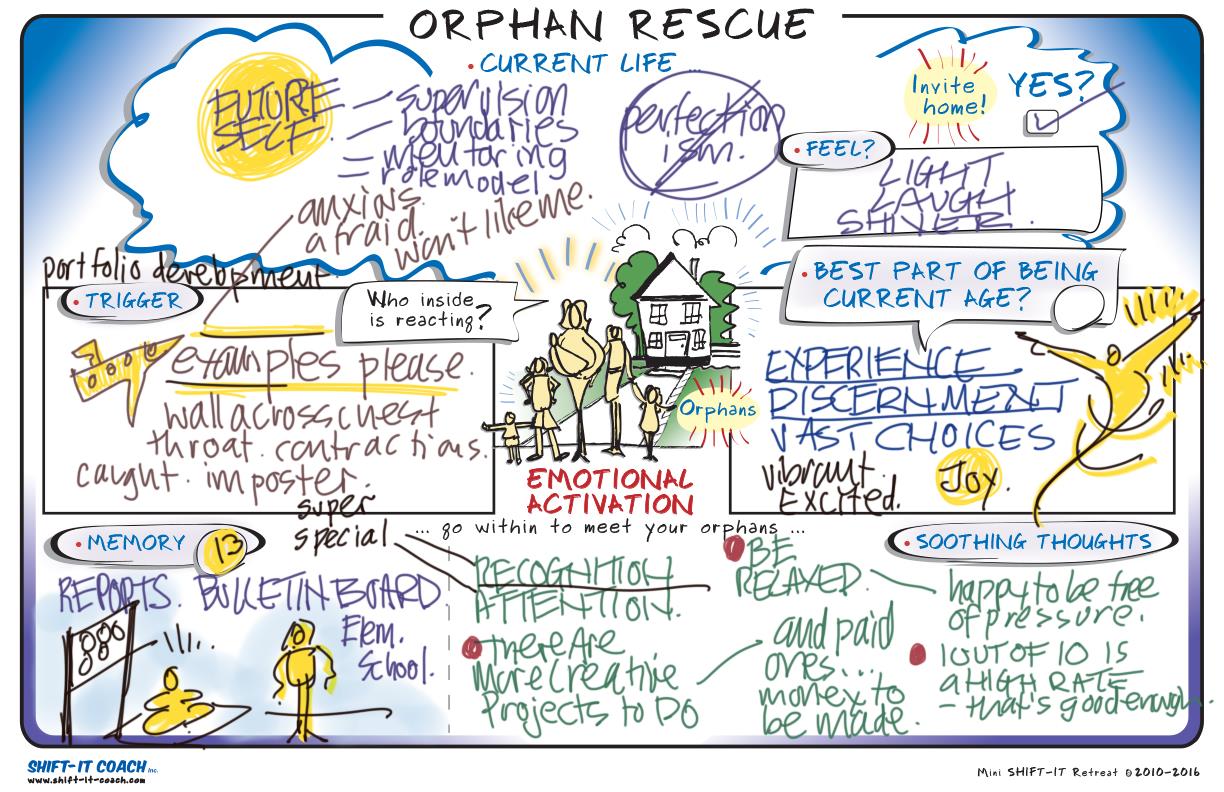 ORPHAN RESCUE
• CURRENT LIFE ...
FUTURE
SELF
— supervision
— boundaries
= mentoring
= role model
perfection
ism.
Invite
home!
YES?
• FEEL?
LIGHT
LAUGH
SHIVER.
anxious.
afraid.
won't like me.
portfolio development
• TRIGGER
Who inside
is reacting?
examples please.
wall across chest
throat. contractions.
caught. imposter.
Orphans
EMOTIONAL
ACTIVATION
• BEST PART OF BEING
CURRENT AGE?
EXPERIENCE
DISCERNMENT
VAST CHOICES
vibrant
Excited.
Joy.
... go within to meet your orphans ...
super
special
• MEMORY
13
REPORTS. BULLETIN BOARD
Elem.
School.
RECOGNITION
ATTENTION.
There Are
More Creative
Projects to DO
BE
RELAXED.
and paid
ones...
money to
be made.
• SOOTHING THOUGHTS
happy to be free
of pressure.
1 OUT OF 10 IS
a HIGH RATE
– that's good enough.
SHIFT-IT COACH Inc.
www.shift-it-coach.com
Mini SHIFT-IT Retreat ©2010-2016